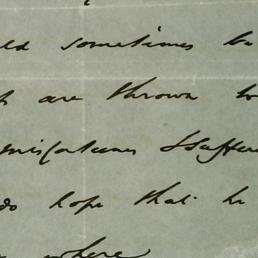 sometimes be
are thrown
misfortunes & suffer
do hope that he
where